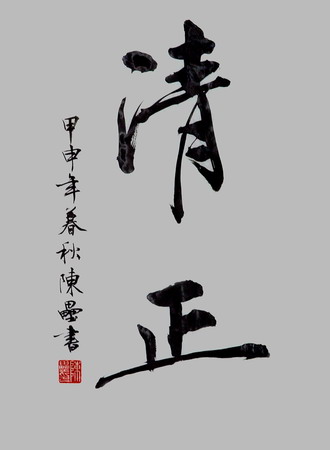 清正
甲申年暮秋陳壘書